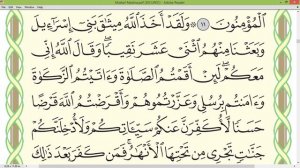 ٱلْمُؤْمِنُونَ ١١ ۞ وَلَقَدْ أَخَذَ ٱللَّهُ مِيثَٰقَ بَنِىٓ إِسْرَٰٓءِيلَ
وَبَعَثْنَا مِنْهُمُ ٱثْنَىْ عَشَرَ نَقِيبًا وَقَالَ ٱللَّهُ إِنِّى
مَعَكُمْ لَئِنْ أَقَمْتُمُ ٱلصَّلَوٰةَ وَءَاتَيْتُمُ ٱلزَّكَوٰةَ
وَءَامَنتُم بِرُسُلِى وَعَزَّرْتُمُوهُمْ وَأَقْرَضْتُمُ ٱللَّهَ قَرْضًا
حَسَنًا لَّأُكَفِّرَنَّ عَنكُمْ سَيِّـَٔاتِكُمْ وَلَأُدْخِلَنَّكُمْ
جَنَّٰتٍ تَجْرِى مِن تَحْتِهَا ٱلْأَنْهَٰرُ فَمَن كَفَرَ بَعْدَ ذَٰلِكَ